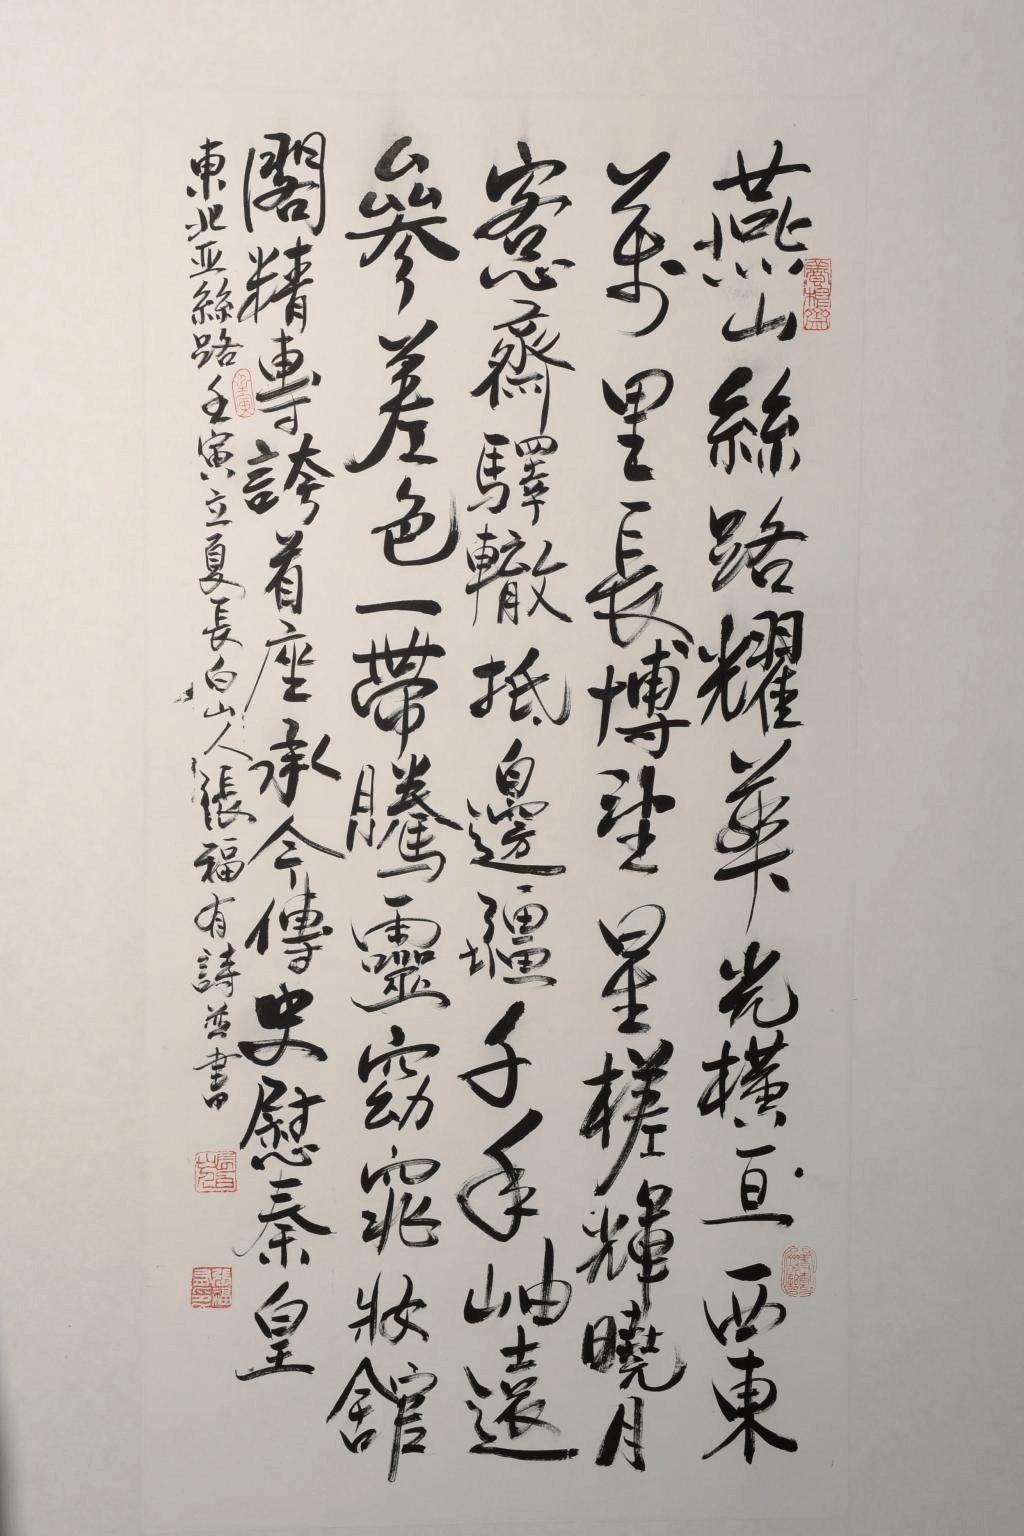 燕山絲路耀華光橫亘西東
萬里長博望星槎輝曉月
愙齋驛轍抵邊疆千年岫遠
參差色一帶騰靈窈窕妝館
閣精專誇首座承今傳史慰秦皇
東北亞絲路壬寅立夏長白山人張福有詩並書
壬寅
張福有印